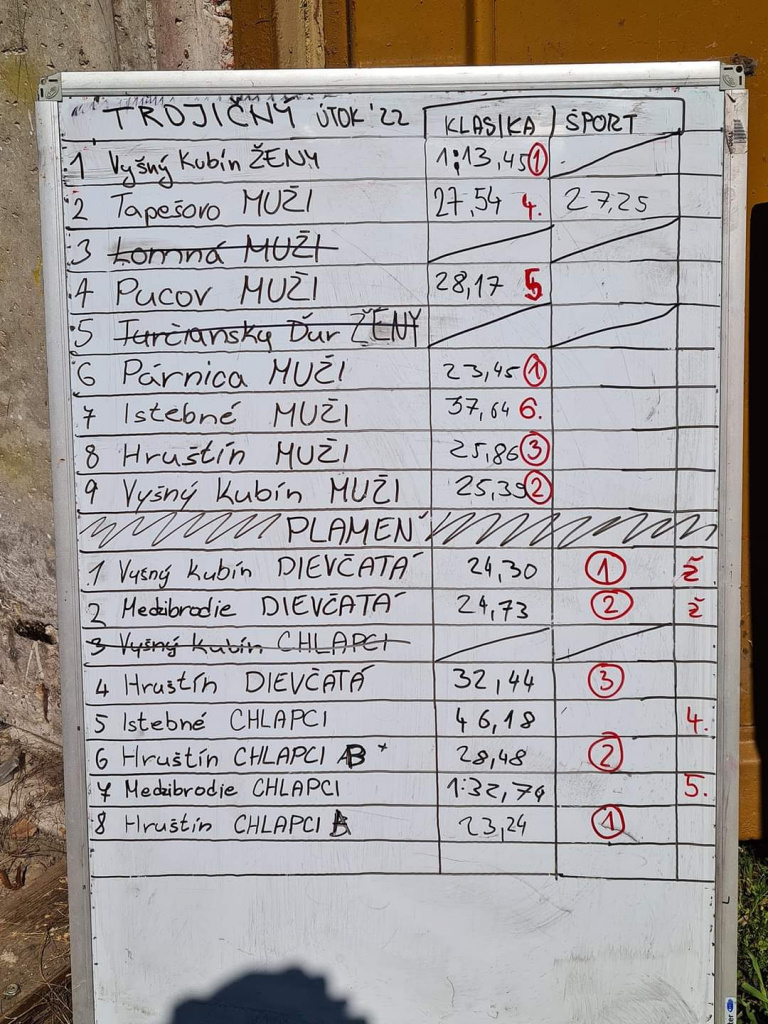 TROJIČNÝ ÚTOK '22 KLASIKA ŠPORT
1 Vyšný Kubín ŽENY 1:13,45 1
2 Tapešovo MUŽI 27,54 4. 27,25
3 Lomná MUŽI
4 Pucov MUŽI 28,17 5
5 Turčiansky Ďur ŽENY
6 Párnica MUŽI 23,45 1
7 Istebné MUŽI 37,64 6.
8 Hruštín MUŽI 25,86 3
9 Vyšný Kubín MUŽI 25,39 2
PLAMEŇ
1 Vyšný Kubín DIEVČATÁ 24,30 1 ž
2 Medzibrodie DIEVČATÁ 24,73 2 ž
3 Vyšný Kubín CHLAPCI
4 Hruštín DIEVČATÁ 32,44 3
5 Istebné CHLAPCI 46,18 4.
6 Hruštín CHLAPCI B * 28,48 2
7 Medzibrodie CHLAPCI 1:32,74 5.
8 Hruštín CHLAPCI A 23,24 1